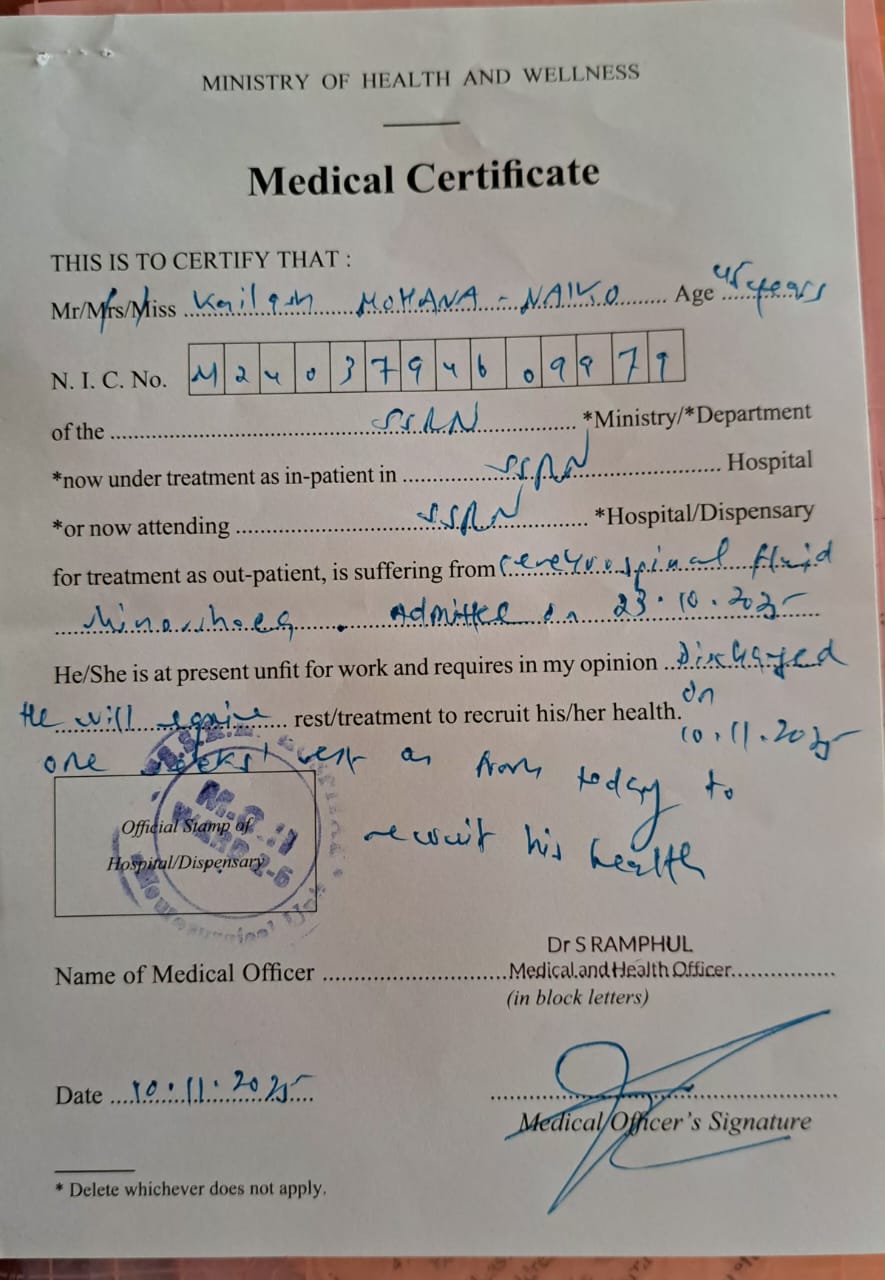 MINISTRY OF HEALTH AND WELLNESS
Medical Certificate
THIS IS TO CERTIFY THAT :
Mr/Mrs/Miss Kailash MOHANA - NAIKO Age 45 years
N. I. C. No. M 2 4 0 3 7 9 4 6 0 9 9 7 9
of the SSRN *Ministry/*Department
*now under treatment as in-patient in SSRN Hospital
*or now attending SSRN *Hospital/Dispensary
for treatment as out-patient, is suffering from Cerebrospinal fluid
. Admitted on 23.10.2025
He/She is at present unfit for work and requires in my opinion Discharged
on
He will require rest/treatment to recruit his/her health.
10.11.2025
one rest as from today to
recruit his health
Official Stamp of
Hospital/Dispensary
Dr S RAMPHUL
Name of Medical Officer Medical and Health Officer
(in block letters)
Date 10.11.2025
Medical Officer's Signature
* Delete whichever does not apply.